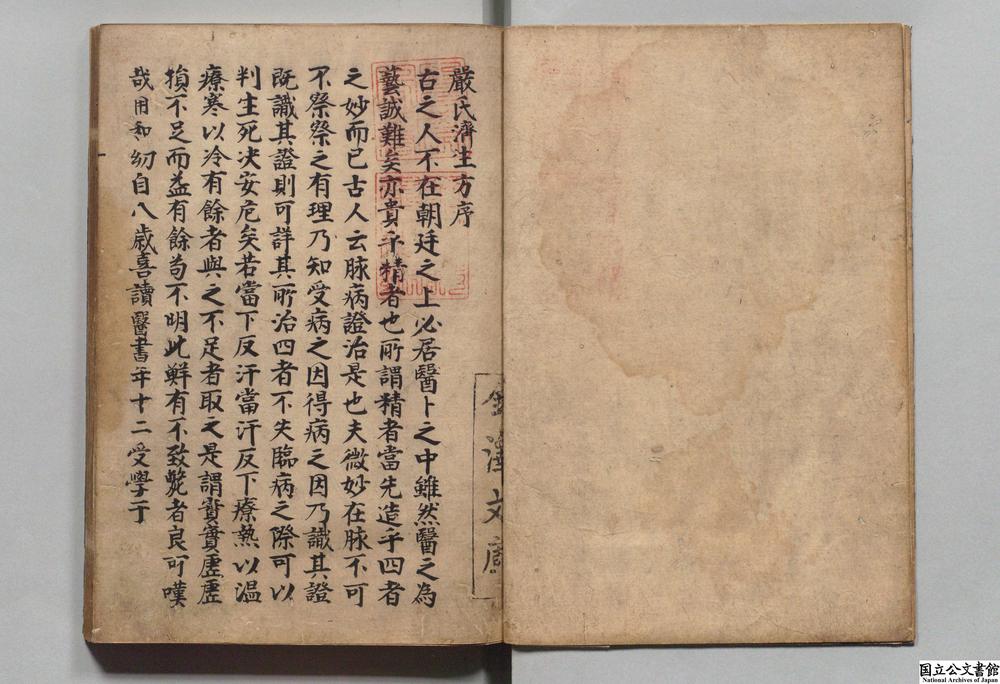 嚴氏濟生方序
古之人不在朝廷之上必居醫卜之中雖然醫之為
藝誠難矣亦貴乎精者也所謂精者當先造乎四者
之妙而已古人云脉病證治是也夫微妙在脉不可
不察察之有理乃知受病之因得病之因乃識其證
既識其證則可詳其所治四者不失臨病之際可以
判生死决安危矣若當下反汗當汗反下療熱以温
療寒以冷有餘者與之不足者取之是謂實實虛虛
損不足而益有餘苟不明此鮮有不致斃者良可嘆
哉用和幼自八歲喜讀醫書年十二受學于
金澤文庫
国立公文書館
National Archives of Japan